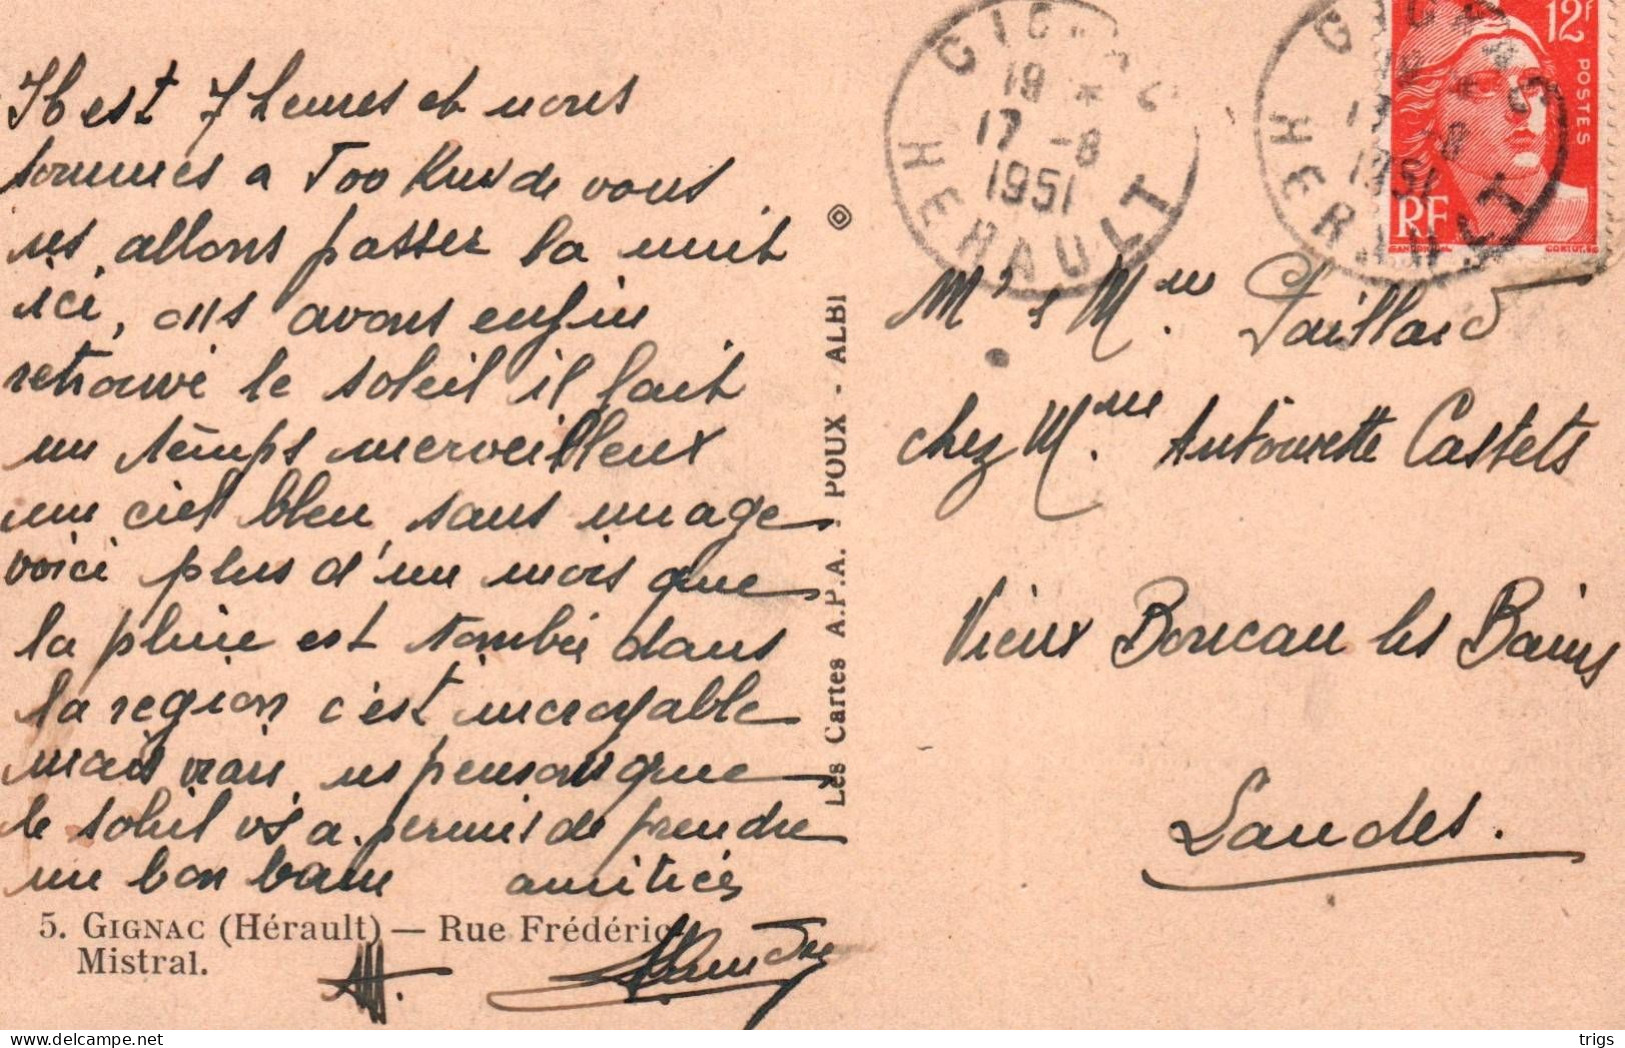 Il est 7 heures et nous
sommes a 700 Kms de vous
ns allons passer la nuit
ici, ns avons enfin
retrouvé le soleil il fait
un temps merveilleux
un ciel bleu sans nuage
voici plus d'un mois que
la pluie est tombée dans
la region c'est incroyable
mais vrai, ns pensons que
le soleil vs a permis de prendre
un bon bain amitiés
5. GIGNAC (Hérault) — Rue Frédéric
Mistral.
Les Cartes A.P.A. POUX - ALBI
GIGNAC
18 *
17 -8
1951
HERAULT
GIGNAC
18 *
17 -8
1951
HERAULT
12f
POSTES
RF
GANDON
CORTOT.SC
Mr & Mme Paillard
chez Mme Antoinette Castets
Vieux Boucau les Bains
Landes.
trigs